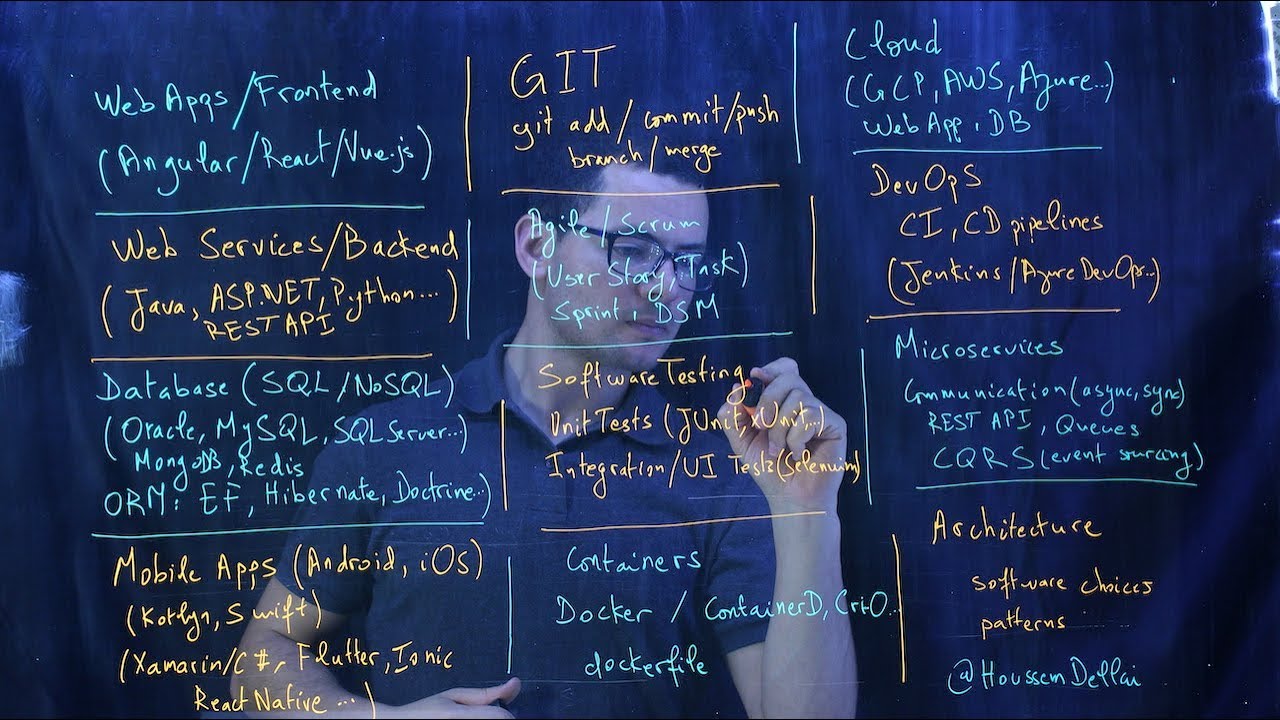 Web Apps/Frontend
(Angular/React/Vue.js)
Web Services/Backend
(Java, ASP.NET, Python...)
REST API
Database (SQL/NoSQL)
(Oracle, MySQL, SQL Server...)
MongoDB, Redis
ORM: EF, Hibernate, Doctrine...)
Mobile Apps (Android, iOS)
(Kotlyn, Swift)
(Xamarin/C#, Flutter, Ionic
React Native ... )
GIT
git add / commit/push
branch/merge
Agile/Scrum
(User Story, Task)
Sprint, DSM
Software Testing
Unit Tests (JUnit, xUnit,...)
Integration/UI Tests (Selenuim)
Containers
Docker / ContainerD, Cri-O...
dockerfile
Cloud
(GCP, AWS, Azure...)
Web App, DB
DevOps
CI, CD pipelines
(Jenkins/Azure DevOps...)
Microservices
Communication (async, sync)
REST API, Queues
CQRS (event sourcing)
Architecture
software choices
patterns
@HoussemDellai